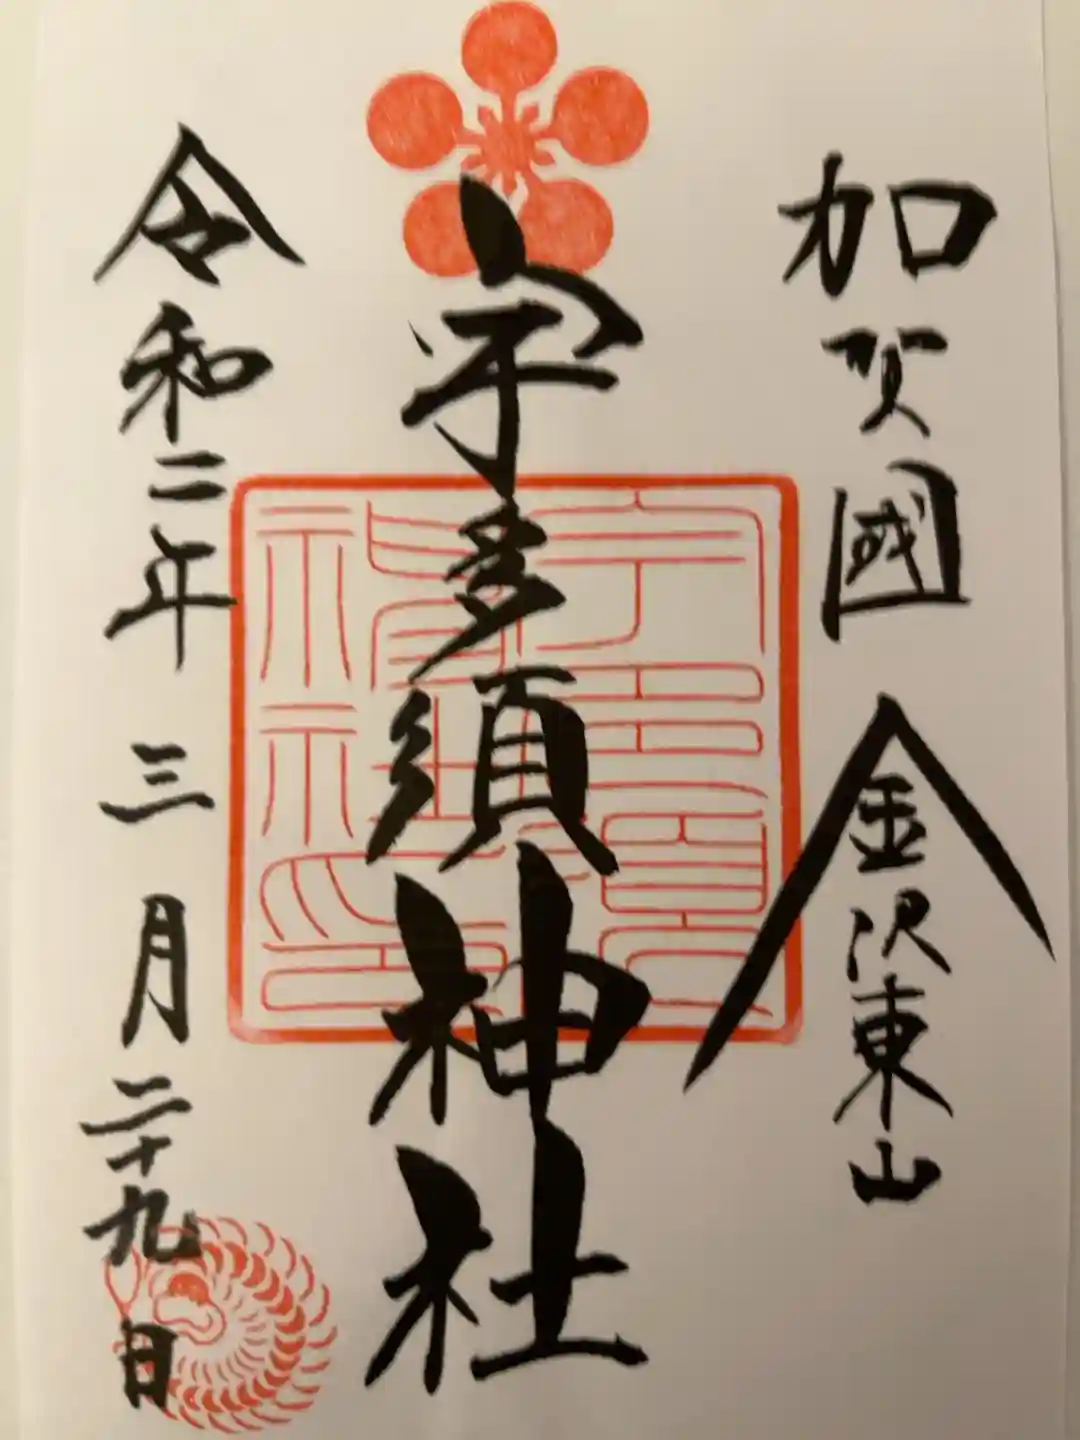 加賀國 金沢東山
宇多須神社
宇多須神社印
令和二年 三月二十九日